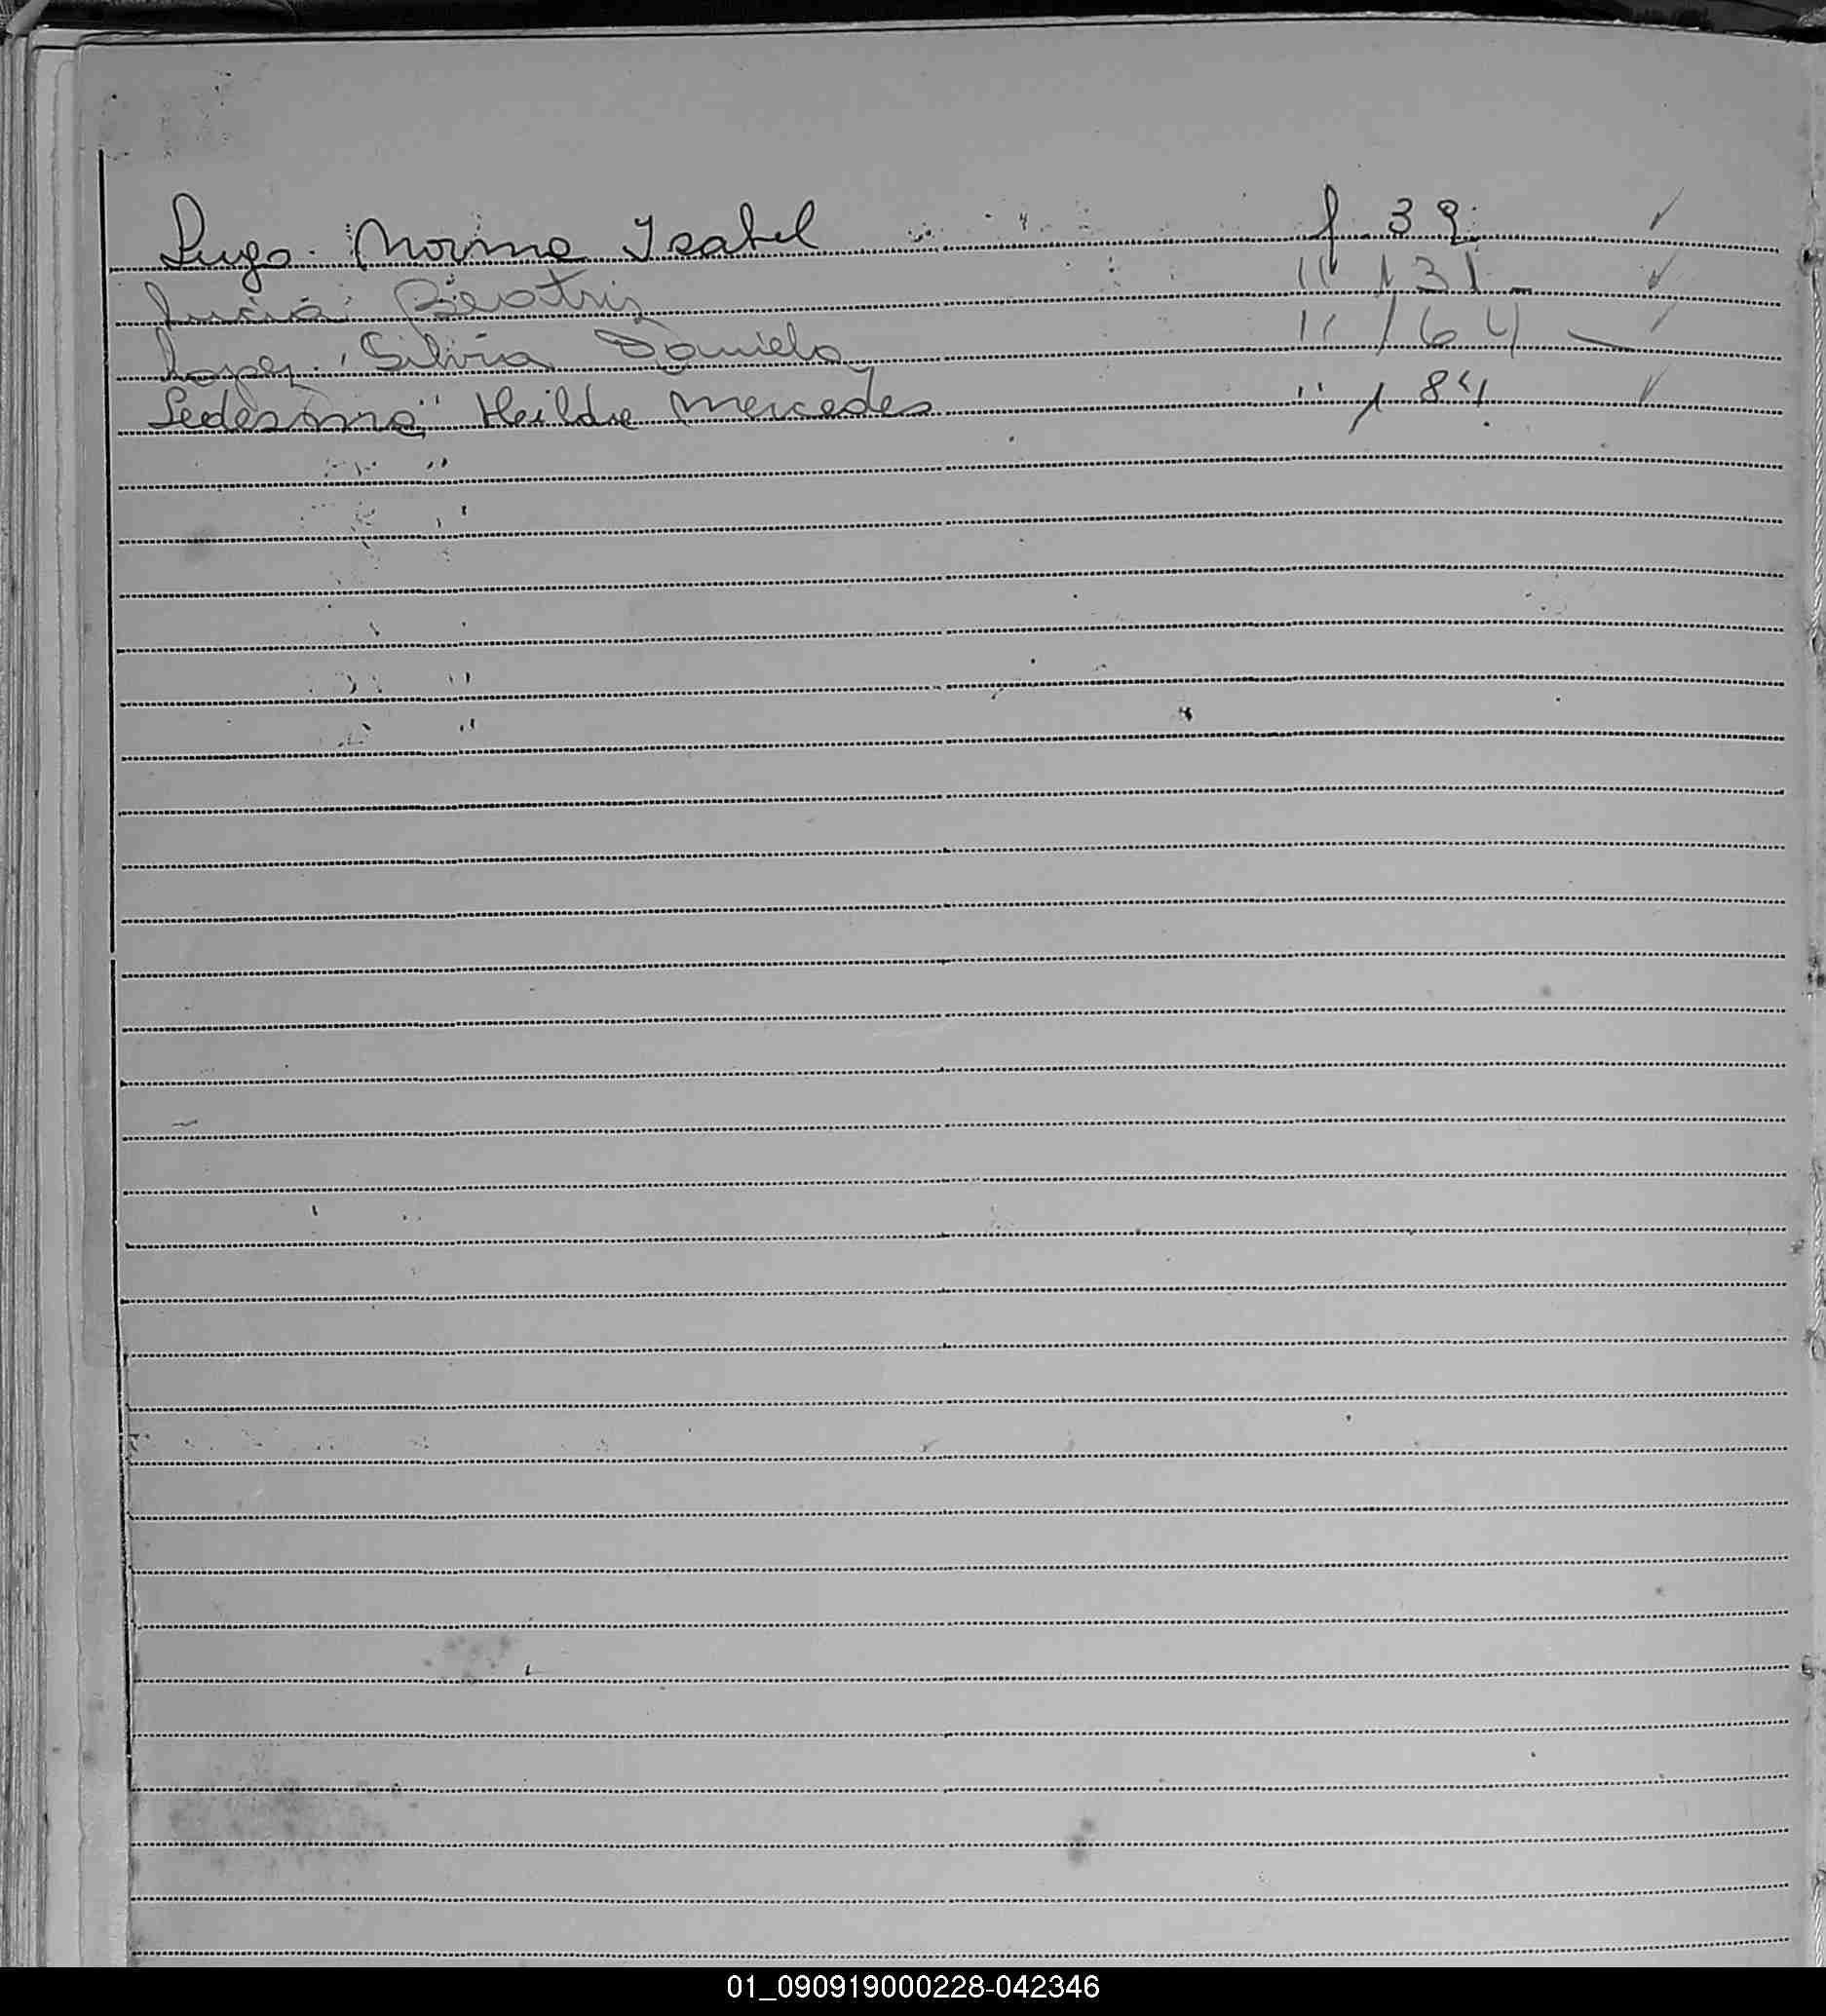 Lugo. Norma Isabel f 39 ✓
Lucia Beatriz " 131 - ✓
Lopez. Silvia Daniela " 164 — ✓
Ledesma Heilde Mercedes " 184 ✓
01_090919000228-042346